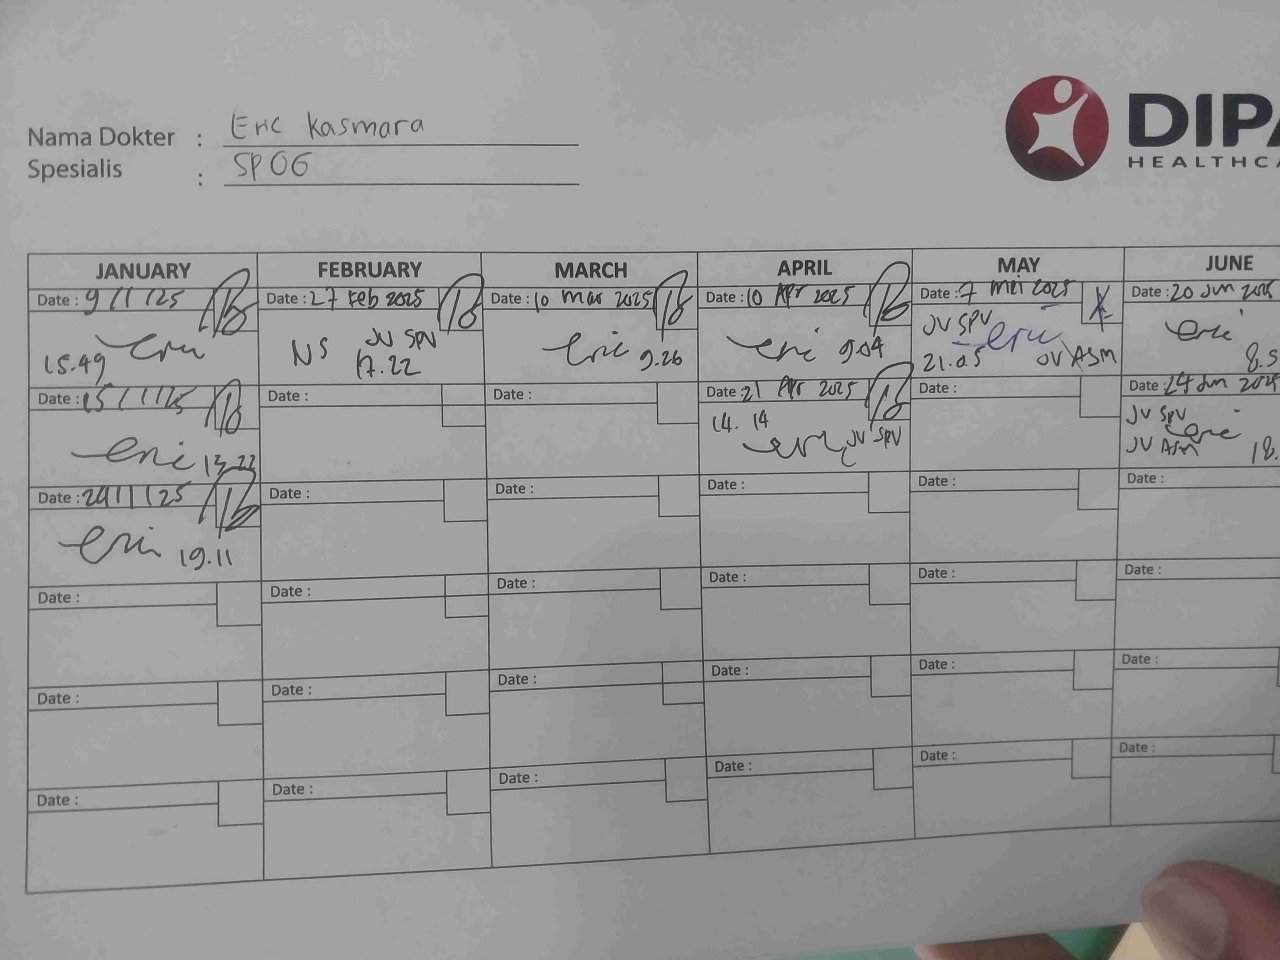 Nama Dokter : Eric Kasmara
Spesialis : SPOG
DIPA
HEALTHCA
JANUARY FEBRUARY MARCH APRIL MAY JUNE
Date : 9/1/25 Date : 27 Feb 2025 Date : 10 mar 2025 Date : 10 Apr 2025 Date : 7 mei 2025 Date : 20 Jun 2025
15.49 eric NS JV SPV 17.22 eric 9.26 eric 9.04 JV SPV eric 21.05 JV ASM eric 8.5
Date : 15/1/25 Date : Date : Date : 21 Apr 2025 Date : Date : 24 Jun 2025
eric 14.14 eric JV SPV JV SPV eric JV ASM 18.
Date : 20/1/25 Date : Date : Date : Date : Date :
eric 19.11
Date : Date : Date : Date : Date : Date :
Date : Date : Date : Date : Date : Date :
Date : Date : Date : Date : Date : Date :